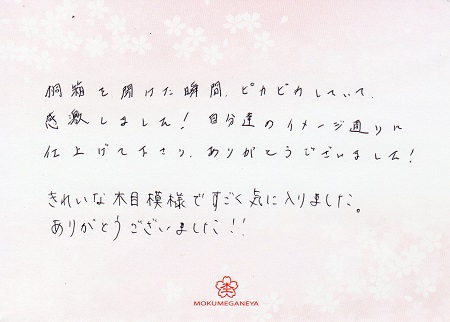 桐箱を開けた瞬間、ピカピカしていて、
感激しました！自分達のイメージ通りに
仕上げて下さり、ありがとうございました！
きれいな木目模様ですごく気に入りました。
ありがとうございました!!
MOKUMEGANEYA